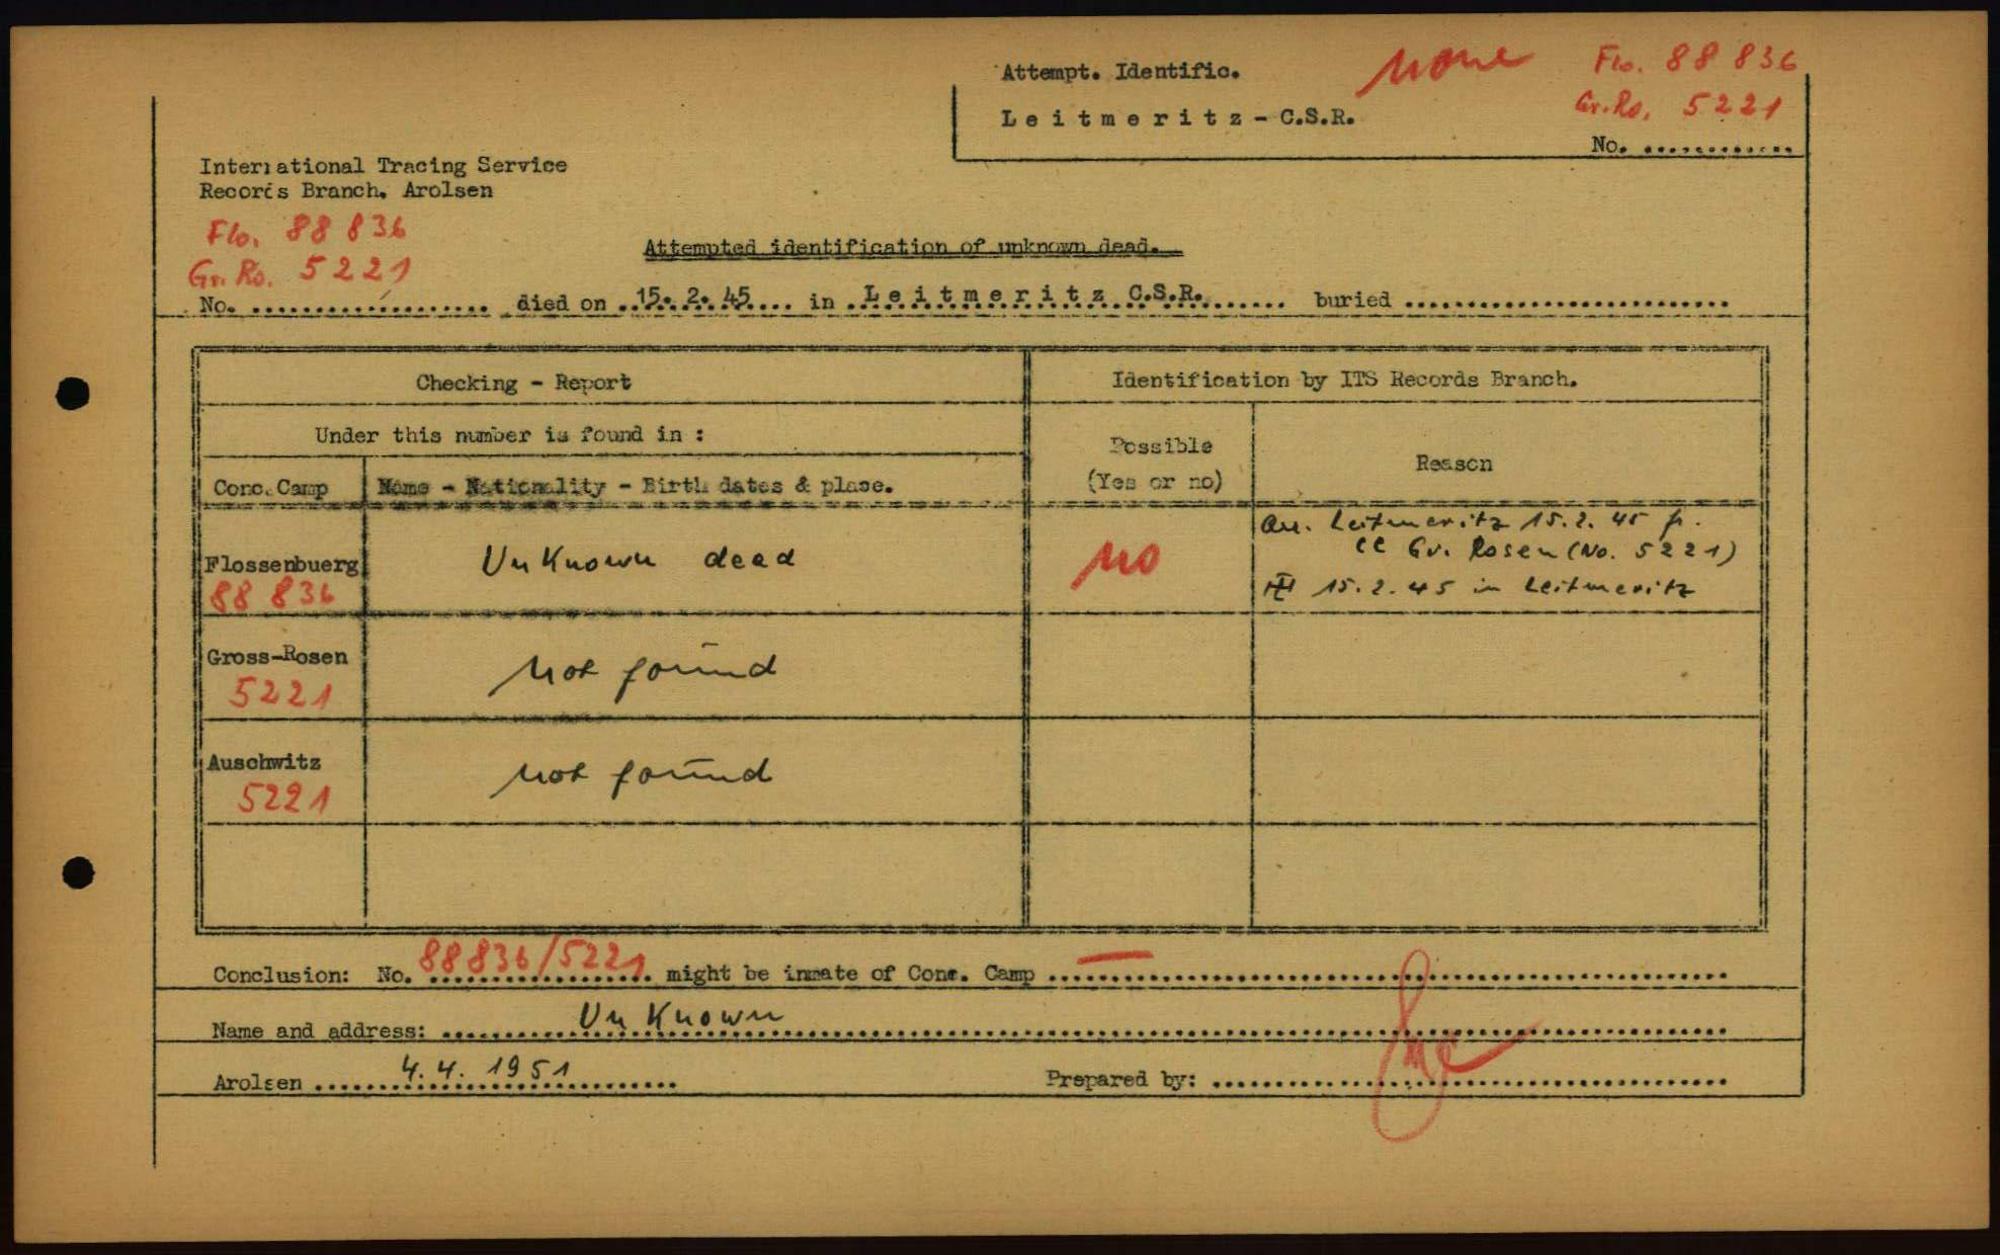 Attempt. Identific. none Flo. 88 836
Leitmeritz - C.S.R. Gr.Ro. 5221
No. ............
International Tracing Service
Records Branch, Arolsen
Flo. 88 836
Gr. Ro. 5221
Attempted identification of unknown dead.
No. ................... died on ..15. 2. 45.... in ..Leitmeritz C.S.R........ buried ..........................
Checking - Report
Identification by ITS Records Branch.
Under this number is found in :
Possible
(Yes or no)
Reason
Conc. Camp
Name - Nationality - Birth dates & place.
Flossenbuerg
88 836
Unknown dead
no
arr. Leitmeritz 15.2.45 fr.
CC Gr. Rosen (No. 5221)
15.2.45 in Leitmeritz
Gross-Rosen
5221
not found
Auschwitz
5221
not found
Conclusion: No. 88836/5221 might be inmate of Conc. Camp —
Name and address: Unknown
Arolsen 4.4. 1951
Prepared by: